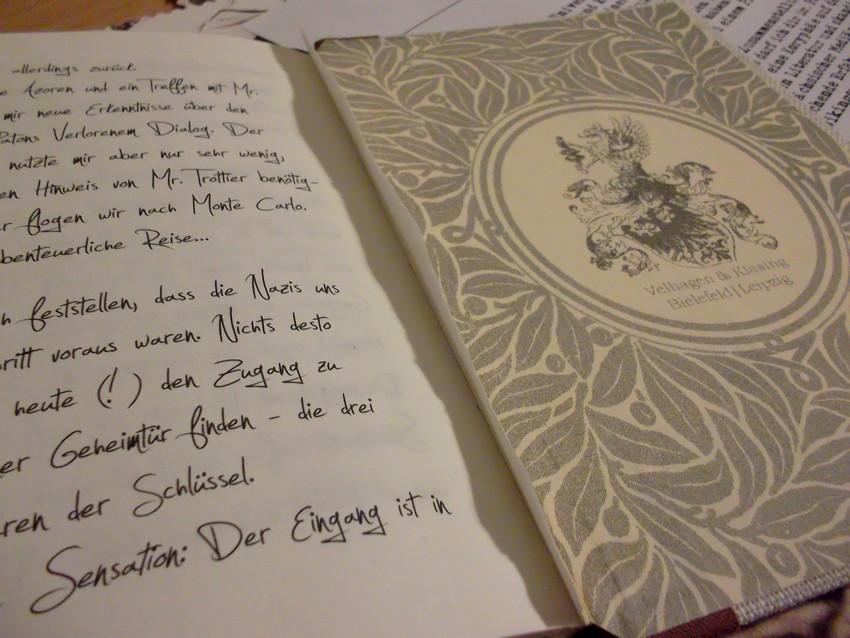 allerdings zurück.
e Azoren und ein Treffen mit Mr.
mir neue Erkenntnisse über den
Platons Verlorenem Dialog. Der
nutzte mir aber nur sehr wenig,
en Hinweis von Mr. Trottier benötig-
r flogen wir nach Monte Carlo.
benteuerliche Reise...
h feststellen, dass die Nazis uns
ritt voraus waren. Nichts desto
heute (!) den Zugang zu
er Geheimtür finden - die drei
ren der Schlüssel.
Sensation: Der Eingang ist in
Velhagen & Klasing
Bielefeld | Leipzig